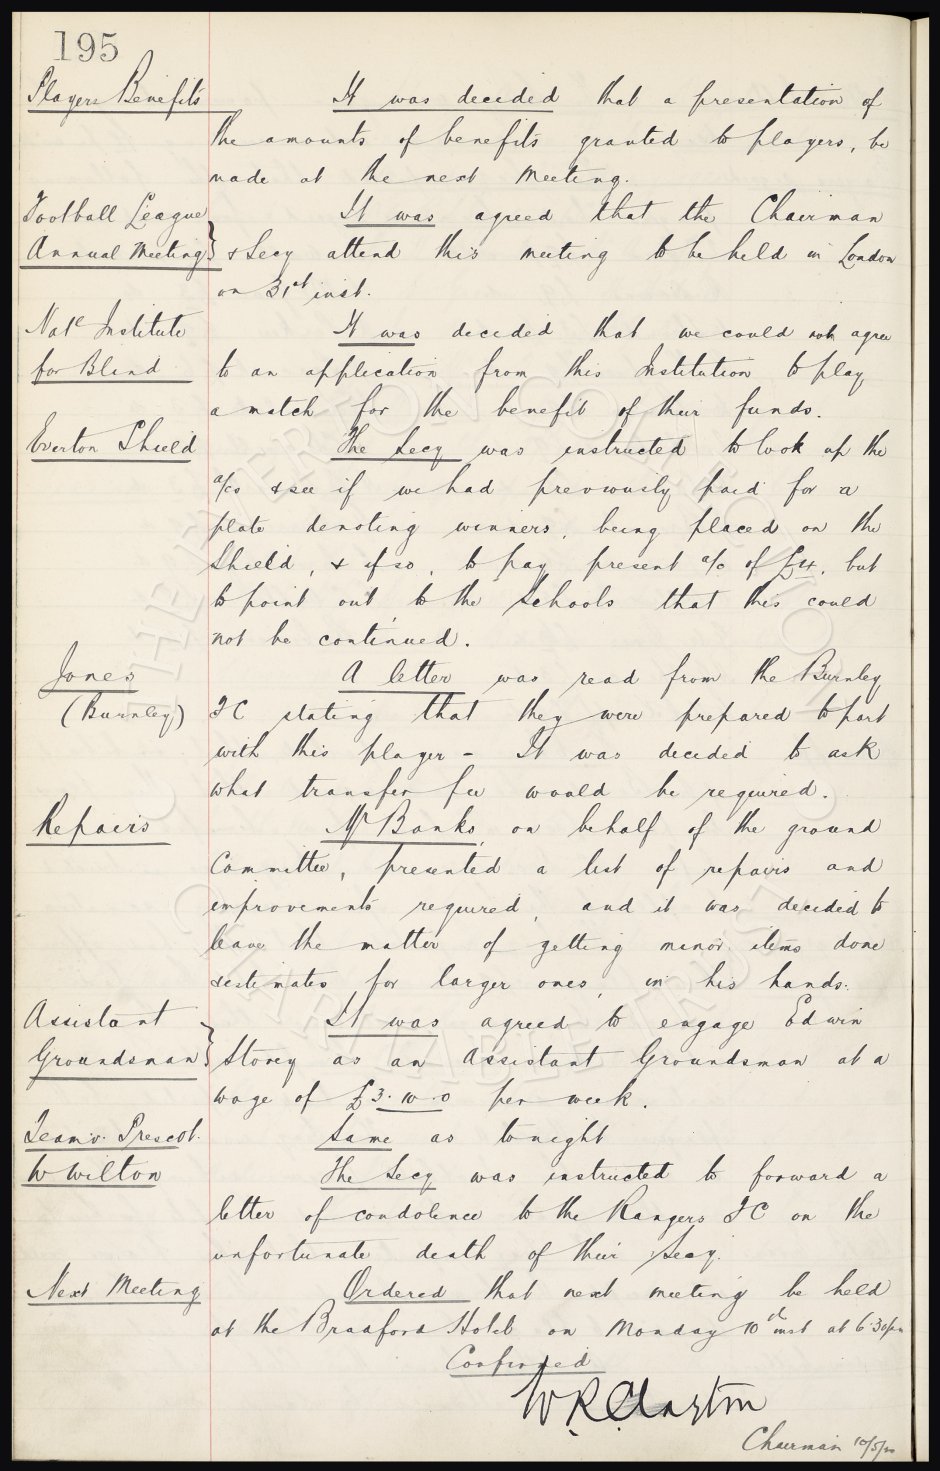 195
Players Benefits It was decided that a presentation of
the amounts of benefits granted to players, be
made at the next meeting.
Football League It was agreed that the Chairman
Annual Meeting} & Secy attend this meeting to be held in London
on 31st inst.
Natl Institute It was decided that we could not agree
for Blind to an application from this Institution to play
a match for the benefit of their funds.
Everton Shield The Secy was instructed to look up the
a/cs & see if we had previously paid for a
plate denoting winners, being placed on the
Shield, & if so, to pay present a/c of £4, but
to point out, to the Schools that this could
not be continued.
Jones A letter was read from the Burnley
(Burnley) FC stating that they were prepared to part
with this player - It was decided to ask
what transfer fee would be required.
Repairs Mr Banks, on behalf of the ground
Committee, presented a list of repairs and
improvements required, and it was decided to
leave the matter of getting minor items done
& estimates for larger ones, in his hands.
Assistant It was agreed to engage Edwin
Groundsman} Storey as an Assistant Groundsman at a
wage of £3.10.0 per week.
Team v. Prescot. Same as tonight
W Wilton The Secy was instructed to forward a
letter of condolence to the Rangers FC on the
unfortunate death of their Secy.
Next Meeting Ordered that next meeting be held
at the Bradford Hotel on Monday 10th inst at 6.30pm
Confirmed
W.R. Clayton
Chairman 10/5/20
THE EVERTON COLLECTION
CHARITABLE TRUST